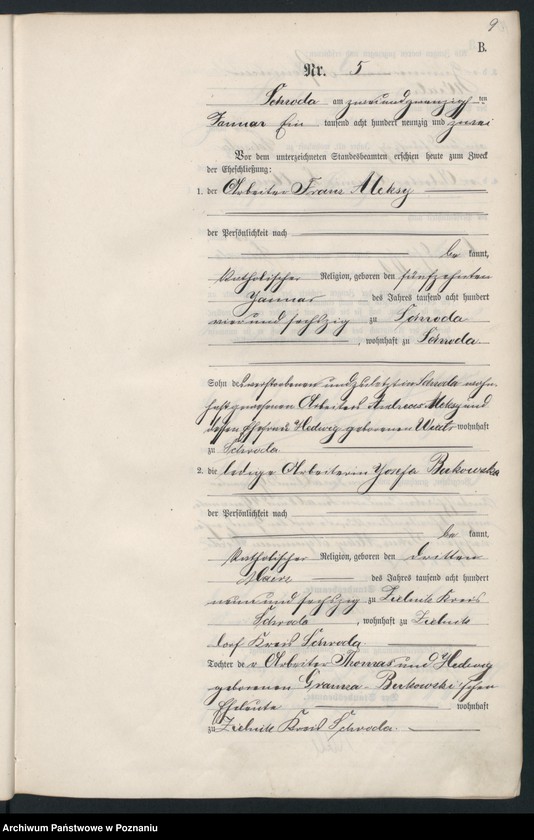 9
B.
Nr. 5
Schroda am zwei und zwanzig ten
Januar Ein tausend acht hundert neunzig und zwei
Vor dem unterzeichneten Standesbeamten erschien heute zum Zweck
der Eheschließung:
1. der Arbeiter Franz Meksy
der Persönlichkeit nach
be kannt,
katholischer Religion, geboren den fünfzehnten
Januar des Jahres tausend acht hundert
vier und sechszig zu Schroda
, wohnhaft zu Schroda
Sohn des verstorbenen und zuletzt in Schroda wohn-
haft gewesenen Arbeiters Andreas Meksy und
dessen Ehefrau Hedwig geborenen wohnhaft
zu Schroda.
2. die ledige Arbeiterin Josefa Butkowska
der Persönlichkeit nach
be kannt,
katholischer Religion, geboren den dritten
Maerz des Jahres tausend acht hundert
neun und sechszig zu Zielnik Kreis
Schroda, wohnhaft zu Zielnik
dorf Kreis Schroda.
Tochter der Arbeiter Thomas und Hedwig
geborenen Butkowski'schen
Eheleute wohnhaft
zu Zielnik Kreis Schroda.
Archiwum Państwowe w Poznaniu